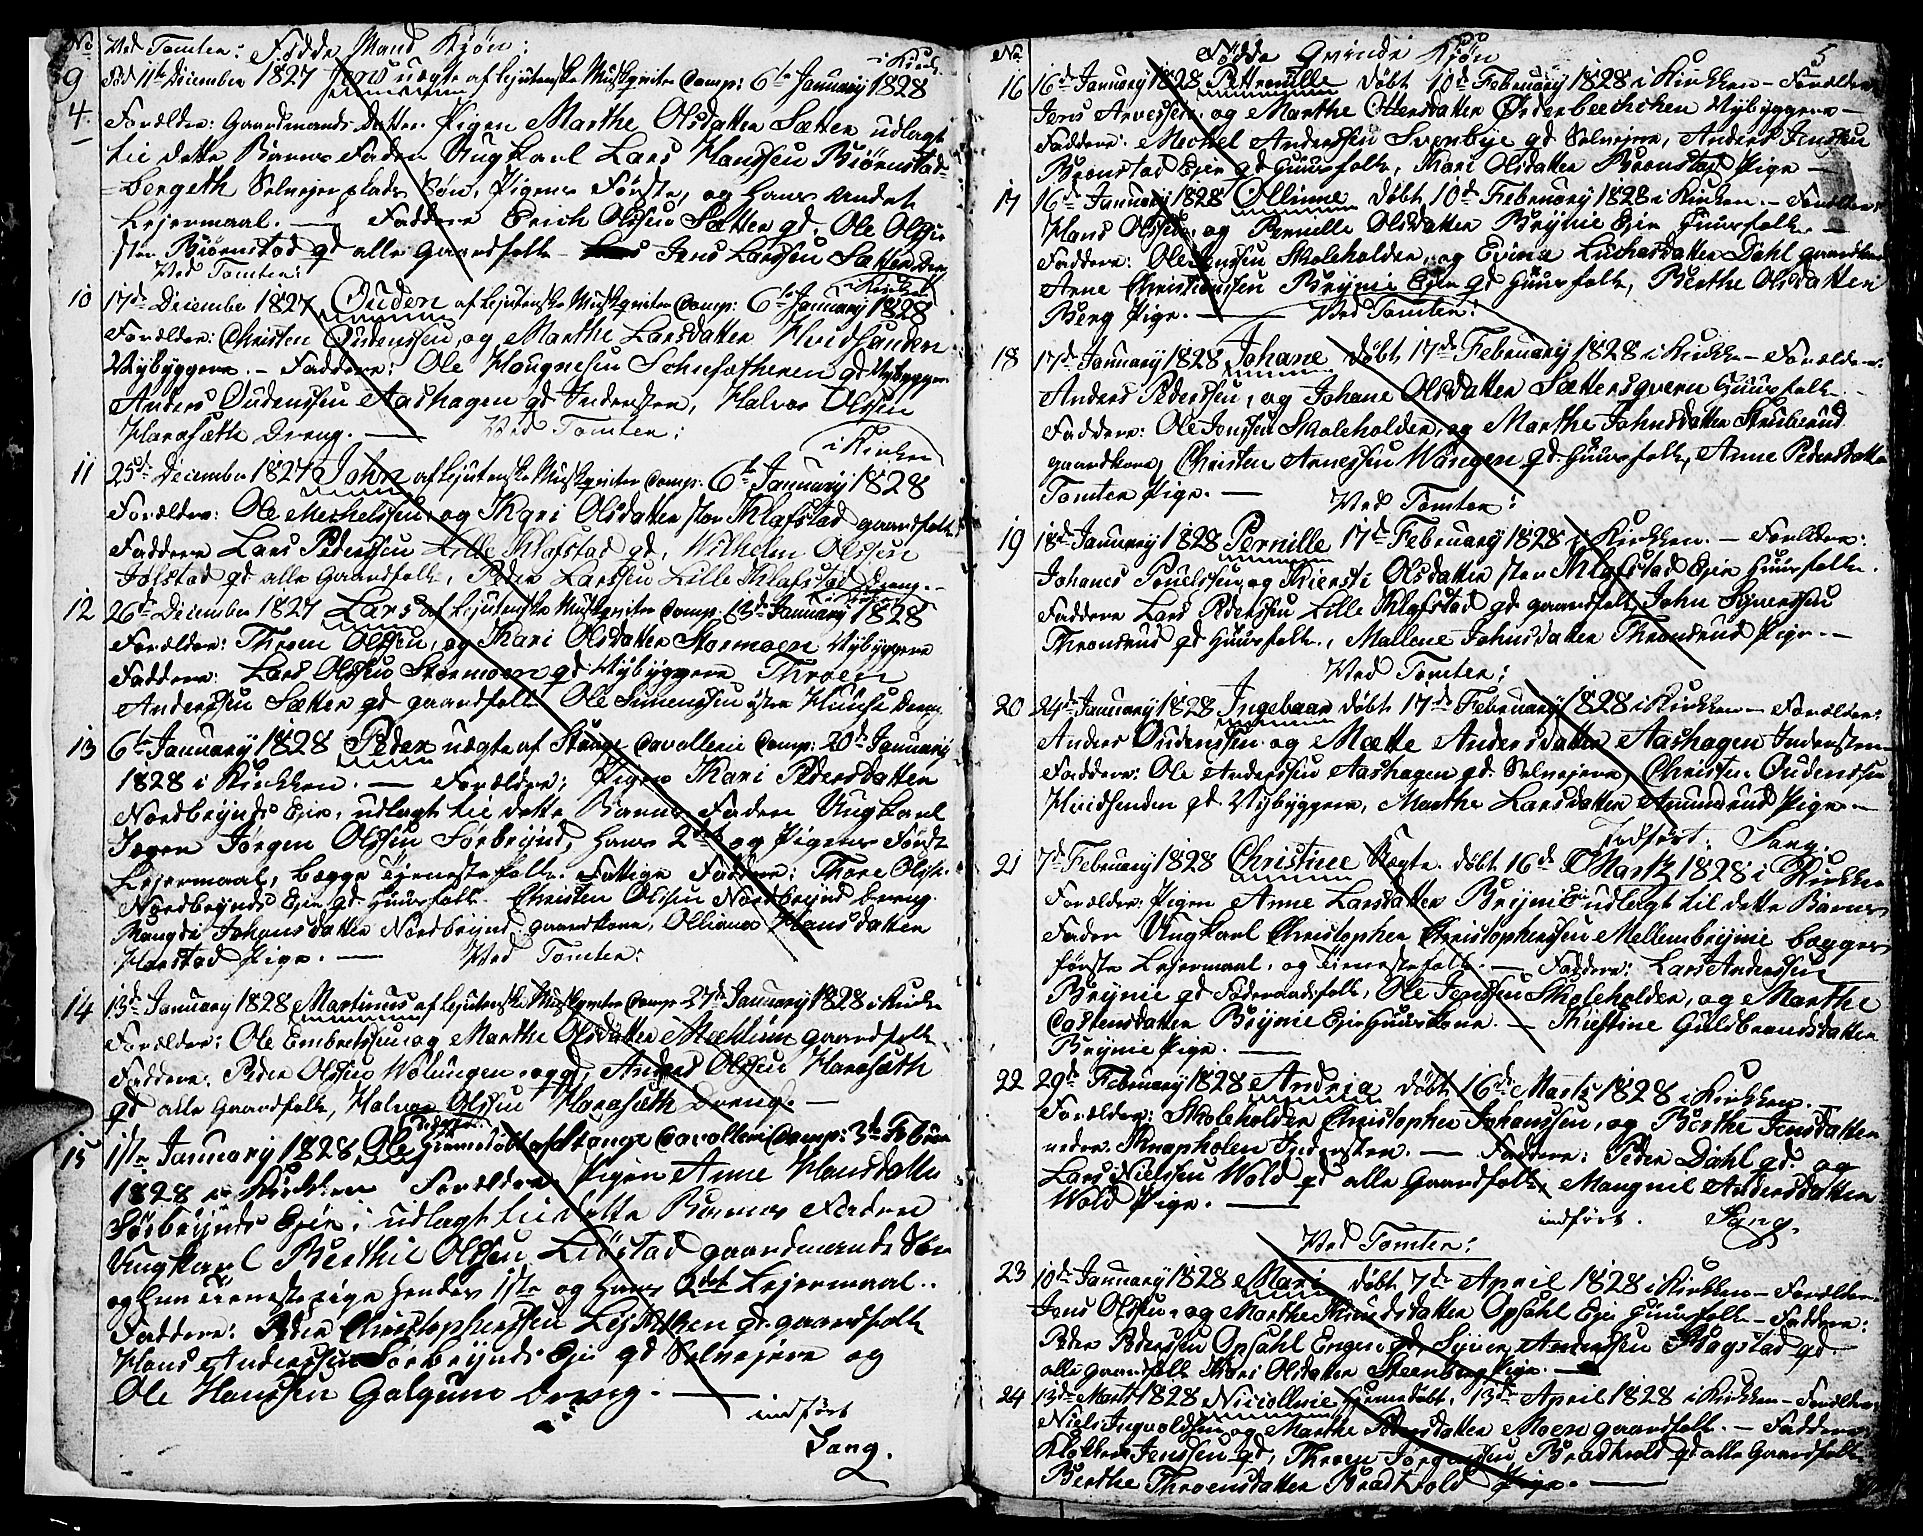 No Ved Tomten: Fødde Mand Kjøn:
i Kirk:
9 Fød 11te December 1827 Jens uægte af Lejutenske Muskqviter Comp: 6te January 1828
4. Forældre: Gaardmands Datter Pigen Marthe Olsdatter Sætter udlagt
til dette Barns Fader Ungkarl Lars Hanssen Biørnstad-
bergeth Selvejerplads Søn, Pigens Første, og Hans Andet
Lejermaal. — Faddere Erich Olssen Sætter gd. Ole Olsse
sten Biørnstad gd alle gaardfolk Jens Larssen Sætter Dreng
Ved Tomten:
i Kirken
10 17de December 1827 Ouden af Lejutenske Muskqviter Comp: 6te January 1828
Forældre: Christen Oudenssen, og Marthe Larsdatter Hvidsanden
Nybyggere. – Faddere: Ole Haugnessen gd Nybygger
Anders Oudenssen Aashagen gd Indersten, Halvor Olssen
Harasæth Dreng. — Ved Tomten:
i Kirken
11 25de December 1827 John af Lejutenske Muskqviter Comp. 6te January 1828
Forældre: Ole Mechelssen, og Kari Olsdatter stor Klafstad gaardfolk
Faddere Lars Pederssen Lille Klafstad gd. Wilhelm Olssen
Jølstad gd alle Gaardfolk, Peder Larssen Lille Klafstad Dreng.–
12 26de December 1827 Lars af Lejutenske Muskqviter Comp. 13de January 1828
Forældre: Throen Olssen, og Kari Olsdatter Stormoen Nybyggere
Faddere: Lars Olssen Stormoen gd Nybyggere Throen
Anderssen Sætter gd gaardfolk Ole Simenssen østre Huuse Dreng
13 6te January 1828 Peder uægte af Stange Cavallerie Comp: 20de January
1828 i Kirkken. — Forældre: Pigen Kari Pedersdatter
Nordbrynds Ejer, udlagt til dette Barns Fader Ungkarl
Jægen Jørgen Olssen Sørbrynd, Hans 2det og Pigens Første
Lejermaal, begge Tjenestefolk. Fattige Faddere: Thore Olss.
Nordbrynds Ejer gd Huusfolk. Christen Olssen Nordbrynd Dreng.
Mangde Johansdatter Nordbrynd gaardkone, Olliana Hansdatter
Harstad Pige. — Ved Tomten:
14 13de January 1828 Martinus af Lejutenske Muskqviter Comp 27de January 1828 i Kirke
Forældre: Ole Embretssen og Marthe Olsdatter Mæhlum gaardfolk
Faddere: Peder Olssen Wolungen gd, Anders Olssen Harasæth
gd alle Gaardfolk, Halvor Olssen Harasæth Dreng. —
15 1ste January 1828 Ole Hjemedøbt af Stange Cavalleri Comp: 3de Februa
1828 i Kirkken Forældre Pigen Anne Hansdatter
Sørbrynds Ejer; udlagt til dette Barns Fadere
Ungkarl Berthil Olssen Liøstad gaardmands Søn
og hun tienestepige hendes 1ste og Hans 2det Lejermaal..
Faddere: Peder Christopherssen gd gaardfolk
Hans Anderssen Sørbrynds Eje gd Selvejere og
Ole Hanssen Galgum Dreng. —
indført
Sang.
No Fødde Qvinde Kjøn 5
16 16de January 1828 Pettronille døbt 10de February 1828 i Kirkken – Forældre
Jens Arvessen og Marthe Ottersdatter Nybyggere –
Faddere: Mechel Anderssen Svenbye gd Selvejere, Anders Jenssen
Brenstad Ejer gd Huusfolk, Kari Olsdatter Brenstad Pige —
17 16de January 1828 Ollinne døbt 10de February 1828 i Kirken. – Forældre:
Hans Olssen, og Pernille Olsdatter Brynie Eje Huusfolk. —
Faddere: Ole Jenssen Skoleholder, og Evina Luchasdatter Dahl gaardkone
Arne Christianssen Brynie Ejer gd Huusfolk, Berthe Olsdatter
Berg Pige. — Ved Tomten:
18 17de January 1828 Johane døbt 17de February 1828 i Kirkke – Forældre:
Anders Pederssen, og Johane Olsdatter Sættersqvern Huusfolk
Faddere: Ole Jenssen Skoleholder, og Marthe Johnsdatter Strubrud
gaardkone, Christen Arnessen Wangen gd Huusfolk, Anne Pedersdatte
Tomten Pige. — Ved Tomten:
19 18de January 1828 Pernille 17de February 1828 i Kirkken. – Forældre:
Johanes Pouelssen, og Kiersti Olsdatter stor Klafstad Eje Huusfolk.
Faddere Lars Pederssen Lille Klafstad gd gaardfolk, John Syverssen
Throndrud gd Huusfolk., Mallene Johnsdatter Throndrud Pige. –
Ved Tomten:
20 24de January 1828 Ingebaar døbt 17de February 1828 i Kirkken – Forældre:
Anders Oudenssen og Mætte Andersdatter Aashagen Indersten
Faddere: Ole Anderssen Aashagen gd Selvejere, Christen Oudenssen
Hvidsanden gd Nybyggere, Marthe Larsdatter Amundrud Pige —
Indført. Sang.
21 7de February 1828 Christine Uægte. døbt 16de Martz 1828 i Kirkken
Forældre: Pigen Anne Larsdatter Brynie Ej udlagt til dette Barns
Fader Ungkarl Christopher Christopherssen Mellembrynie begges
første Lejermaal. og tienestefolk. — Faddere: Lars Anderssen
Brynie gd Føderaadsfolk, Ole Jenssen Skoleholder, og Marthe
Castensdatter Brynie Eje Huuskone. — Kiestine Guldbrandsdatter
Brynie Pige. —
22 29de February 1828 Andria døbt 16de Martz 1828 i Kirkken. –
Forældre: Skoleholder Christopher Johanssen, og Berthe Jensdatter
nedre Knapholen Indersten. — Faddere: Peder Dahl gd og
Lars Nielssen Wold gd alle Gaardfolk, Mangnil Andersdatter
Wold Pige. —
indført. Sang.
Ved Tomten:
23 10de January 1828 Mari døbt 7de April 1828 i Kirkken – Forældre:
Jens Olssen, og Marthe Knudsdatter Opsahl Eje Huusfolk – Faddere:
Peder Pederssen Opsahl Engen gd, Syver Arnessen Bagstad gd
alle gaardfolk Kari Olsdatter Steenberg Pige. —
24 13de Martz 1828 Nicolline Hjemedøbt. 13de April 1828 i Kirkken – Forældre:
Niels Ingvoldssen, og Marthe Pedersdatter Moen gaardfolk. – Faddere
Klokker Jenssen gd, Throen Jørgenssen Bradtvold gd alle Gaardfolk
Berthe Throensdatter Bradtvold Pige. —